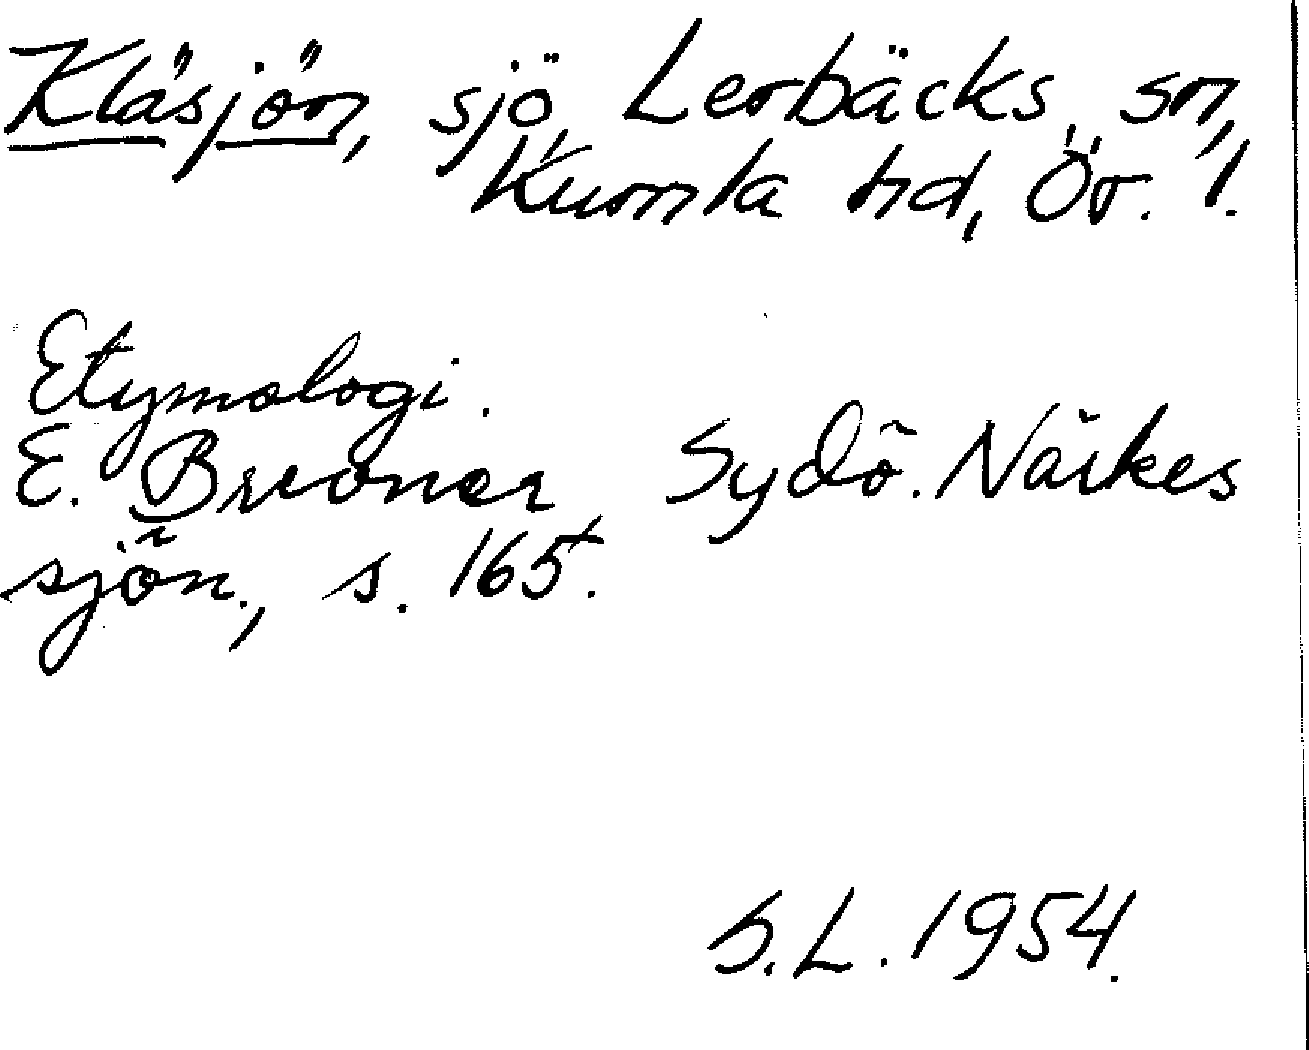 Kläsjön, sjö, Lerbäcks sn,
Kumla hd, Ör. l.
Etymologi.
E. Brevner Sydö. Närkes
sjön., s. 165.
S.L. 1954.